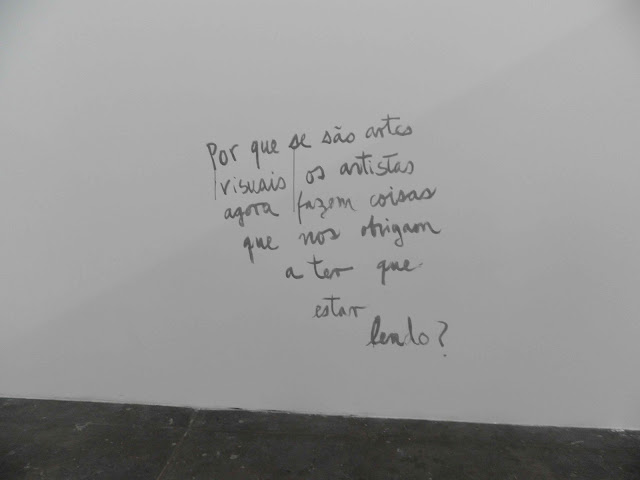 Por que se são artes
visuais os artistas
agora fazem coisas
que nos obrigam
a ter que
estar
lendo?